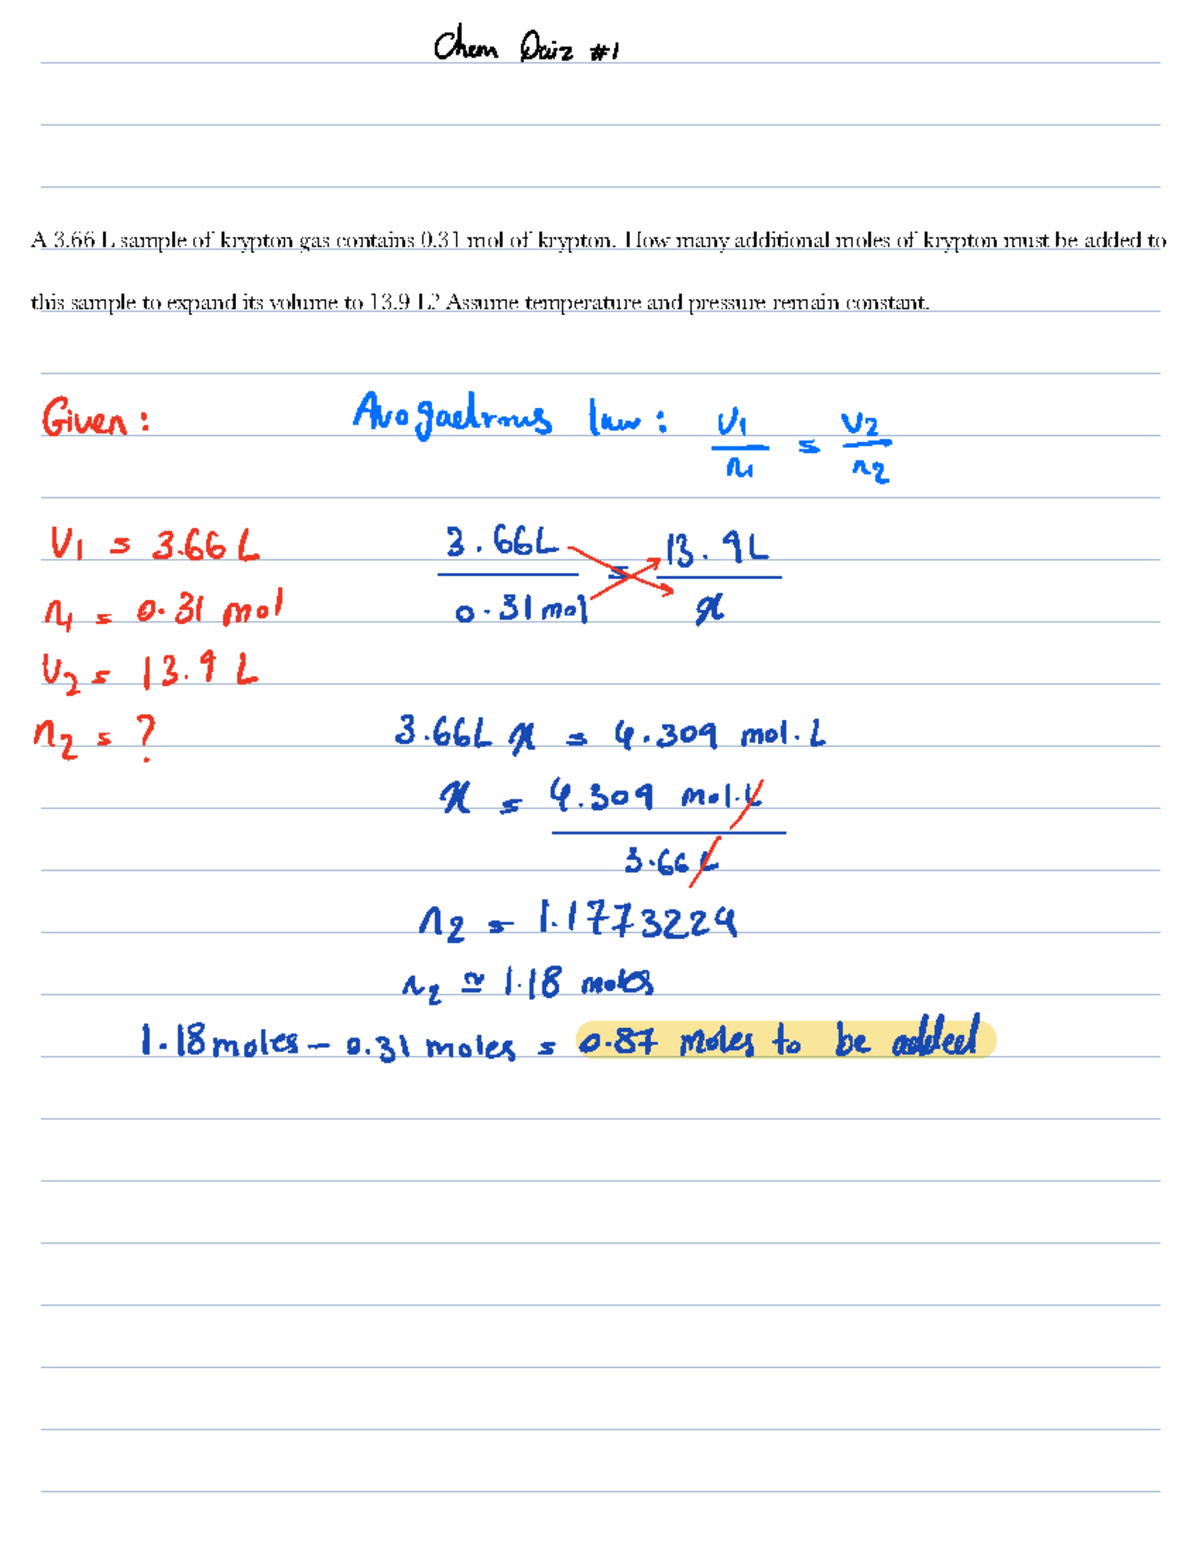 Chem Quiz #1
A 3.66 L sample of krypton gas contains 0.31 mol of krypton. How many additional moles of krypton must be added to
this sample to expand its volume to 13.9 L? Assume temperature and pressure remain constant.
Given:
Avogadrous law: V1/n1 = V2/n2
V1 = 3.66 L
3.66L/0.31 mol = 13.9L/x
n1 = 0.31 mol
V2 = 13.9 L
n2 = ?
3.66L x = 4.309 mol.L
x = 4.309 mol.L
3.66 L
n2 = 1.1773224
n2 ≃ 1.18 moles
1.18 moles - 0.31 moles = 0.87 moles to be added